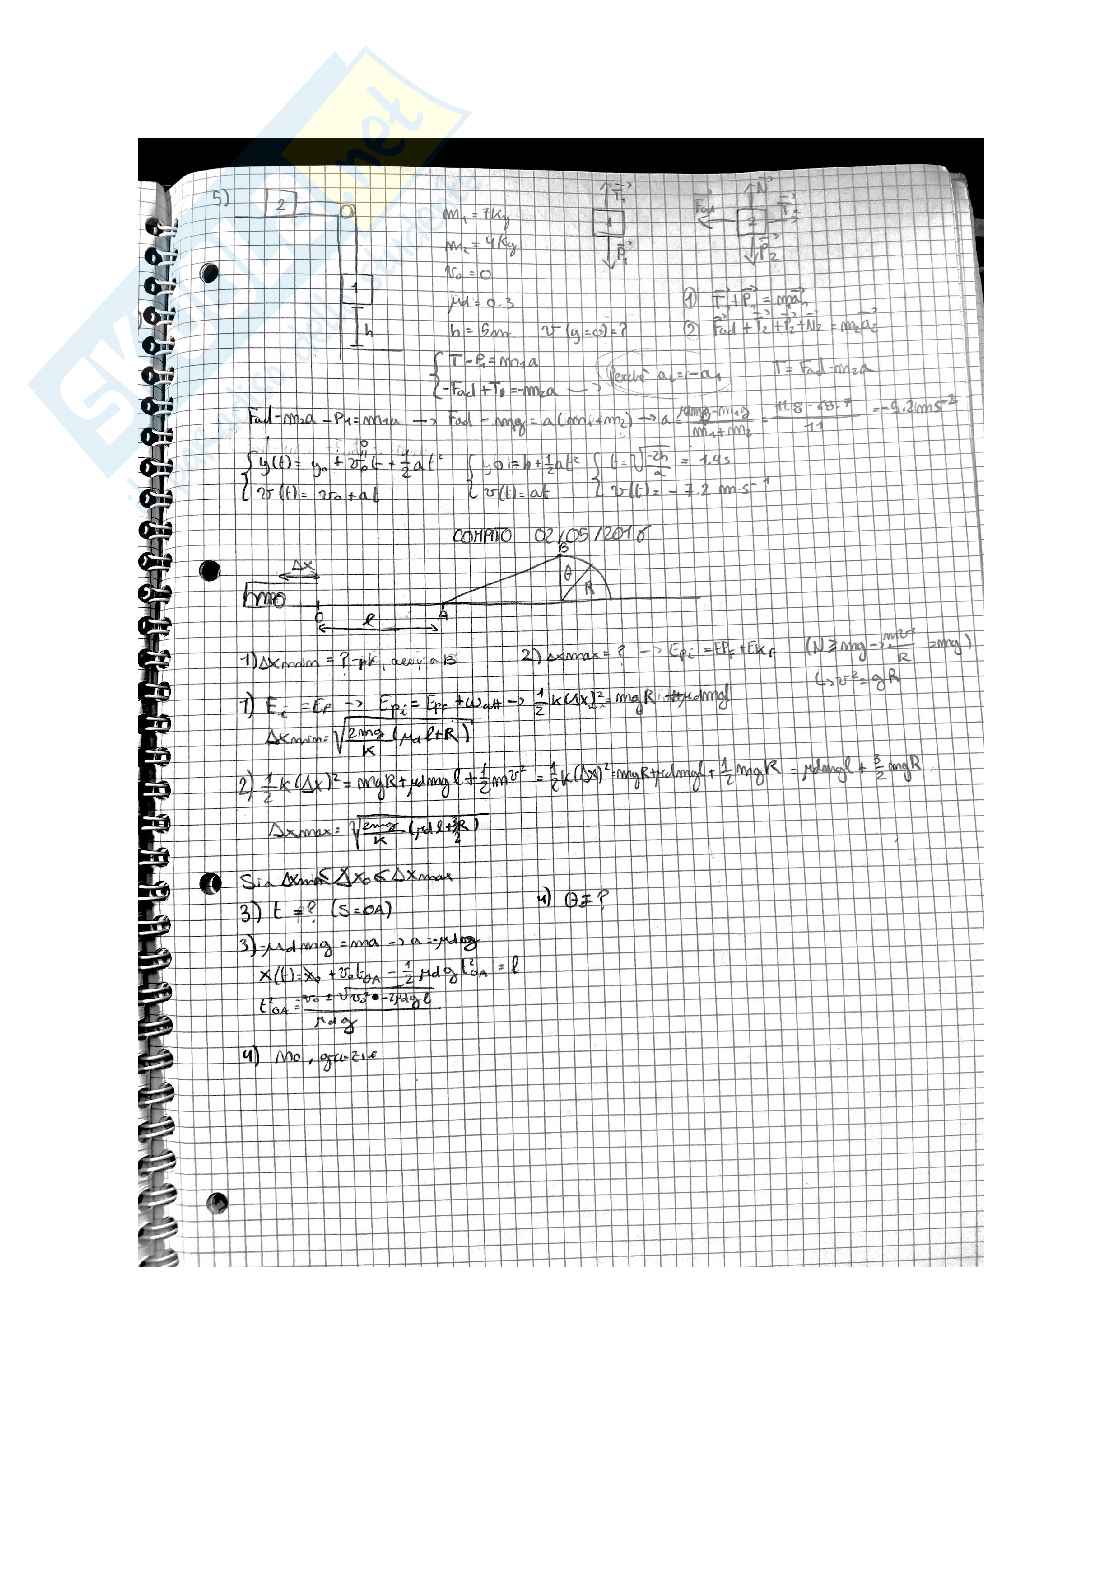 5)
2
1
h
m₁ = 7Kg
m₂ = 4Kg
v₀ = 0
μd = 0.3
h = 5m v(y=0)=?
T₁
1
P₁
Fad
N
2
T₂
P₂
1) T + P₁ = ma₁
2) Fad + T₂ + P₂ + N₂ = m₂a₂
{ T - P₁ = m₁a
{ -Fad + T = -m₂a → Perché a₂ = -a₁
T = Fad - m₂a
Fad - m₂a - P₁ = m₁a → Fad - mg = a(m₁+m₂) → a =
m₁+m₂
11
{ y(t) = y₀ + v₀t + 1/2 at²
{ v(t) = v₀ + at
{ 0 = h + 1/2 at²
{ v(t) = at
{ t = √(-2h/a) = 1.4s
{ v(t) = -7.2 m·s⁻¹
COMPITO 02/05/2016
Δx
m
O
l
A
B
θ
R
1) Δxmin = ?
2) Δxmax = ? → Epi = Epf + Ekf
(N ≥ mg → mv²/R = mg)
↳ v² = gR
1) Ei = Ef → Epi = Epf + Watt → 1/2 k(Δx)² = mgR + μdmgl
Δxmin = √(2mg/K (μd l + R))
2) 1/2 k(Δx)² = mgR + μdmgl + 1/2 mv² = 1/2 k(Δx)² = mgR + μdmgl + 1/2 mgR = μdmgl + 3/2 mgR
Δxmax = √(2mg/K (μd l + 3/2 R))
Sia Δxmin < Δx₀ < Δxmax
3) t = ? (S = OA)
4) θ = ?
3) -μdmg = ma → a = -μdg
x(t) = x₀ + v₀tOA - 1/2 μdg t²OA = l
t²OA = v₀ ± √(v₀² - 2μdgl)
μdg
4) No, grazie